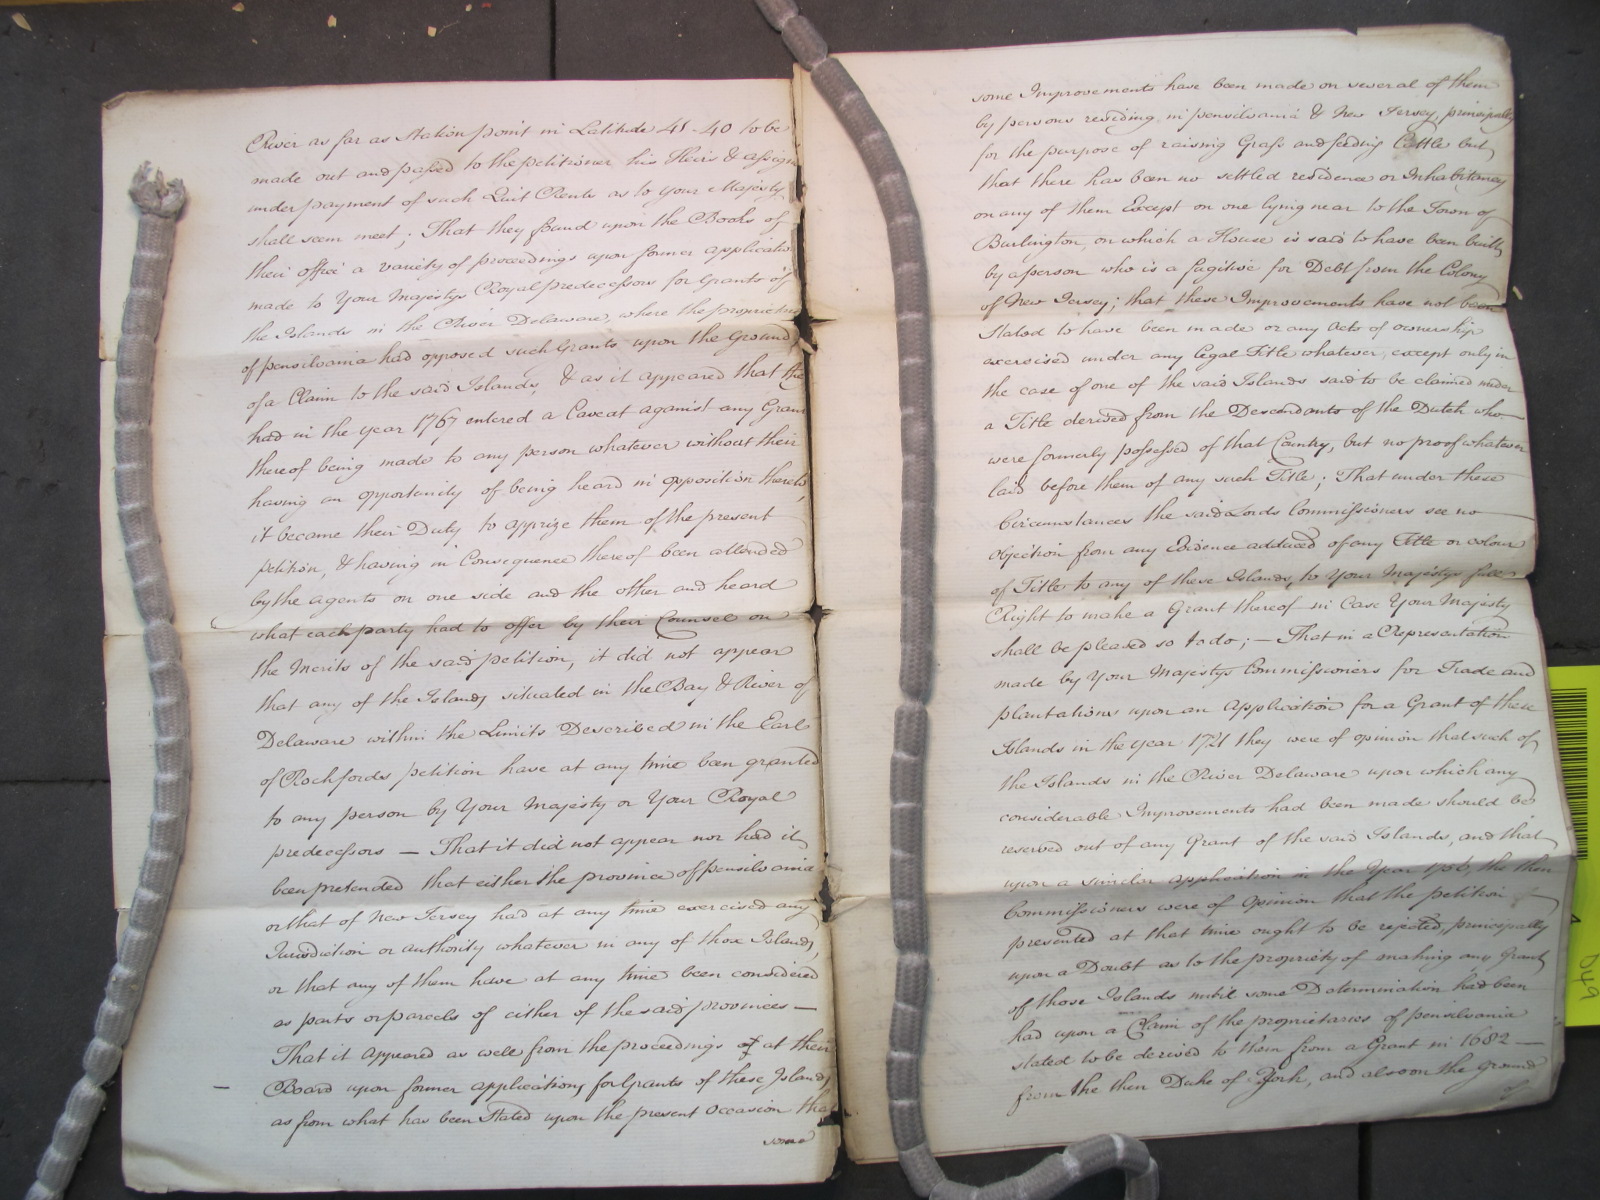 River as far as Station point in Latitude 41-40 to be
made out and passed to the petitioner his Heirs & assigns
under payment of such Quit Rents as to Your Majesty
shall seem meet; That they found upon the Books of
their office a variety of proceedings upon former applications
made to Your Majestys Royal predecessors for Grants of
the Islands in the River Delaware, where the proprietors
of pensilvania had opposed such Grants upon the Ground
of a Claim to the said Islands, & as it appeared that they
had in the year 1767 entered a Caveat against any Grant
thereof being made to any person whatever without their
having an opportunity of being heard in opposition thereto,
it became their Duty to apprize them of the present
petition, & having in Consequence thereof been attended
by the agents on one side and the other and heard
what each party had to offer by their Counsel on
the Merits of the said petition, it did not appear
that any of the Islands situated in the Bay & River of
Delaware within the Limits Described in the Earl
of Rochfords petition have at any time been granted
to any person by Your Majesty or Your Royal
predecessors — That it did not appear nor had it
been pretended that either the province of pensilvania
or that of New Jersey had at any time exercised any
Jurisdiction or authority whatever in any of those Islands,
or that any of them have at any time been considered
as parts or parcels of either of the said provinces —
That it appeared as well from the proceedings of at their
Board upon former applications for Grants of these Islands
as from what has been Stated upon the present Occasion that
some
some Improvements have been made on several of them
by persons residing in pensilvania & New Jersey, principally
for the purpose of raising Grass and feeding Cattle but
that there has been no settled residence or Inhabitancy
on any of them Except on one lying near to the Town of
Burlington, on which a House is said to have been built
by a person who is a fugitive for Debt from the Colony
of New Jersey; that these Improvements have not been
Stated to have been made or any Acts of ownership
exercised under any legal Title whatever, except only in
the case of one of the said Islands said to be claimed under
a Title derived from the Descendants of the Dutch who
were formerly possessed of that Country, but no proof whatever
laid before them of any such Title; That under these
Circumstances the said Lords Commissioners see no
objection from any Evidence adduced of any Title or colour
of Title to any of these Islands, to Your Majestys full
Right to make a Grant thereof in Case Your Majesty
shall be pleased so to do; — That in a Representation
made by Your Majestys Commissioners for Trade and
plantations upon an Application for a Grant of these
Islands in the year 1721 they were of opinion that such of
the Islands in the River Delaware upon which any
considerable Improvements had been made should be
reserved out of any Grant of the said Islands, and that
upon a similar application in the Year 1756, the then
Commissioners were of Opinion that the petition
presented at that time ought to be rejected, principally
upon a Doubt as to the propriety of making any Grant
of those Islands until some Determination had been
had upon a Claim of the proprietaries of pensilvania
stated to be derived to them from a Grant in 1682 —
from the then Duke of York, and also on the Ground
of
D49